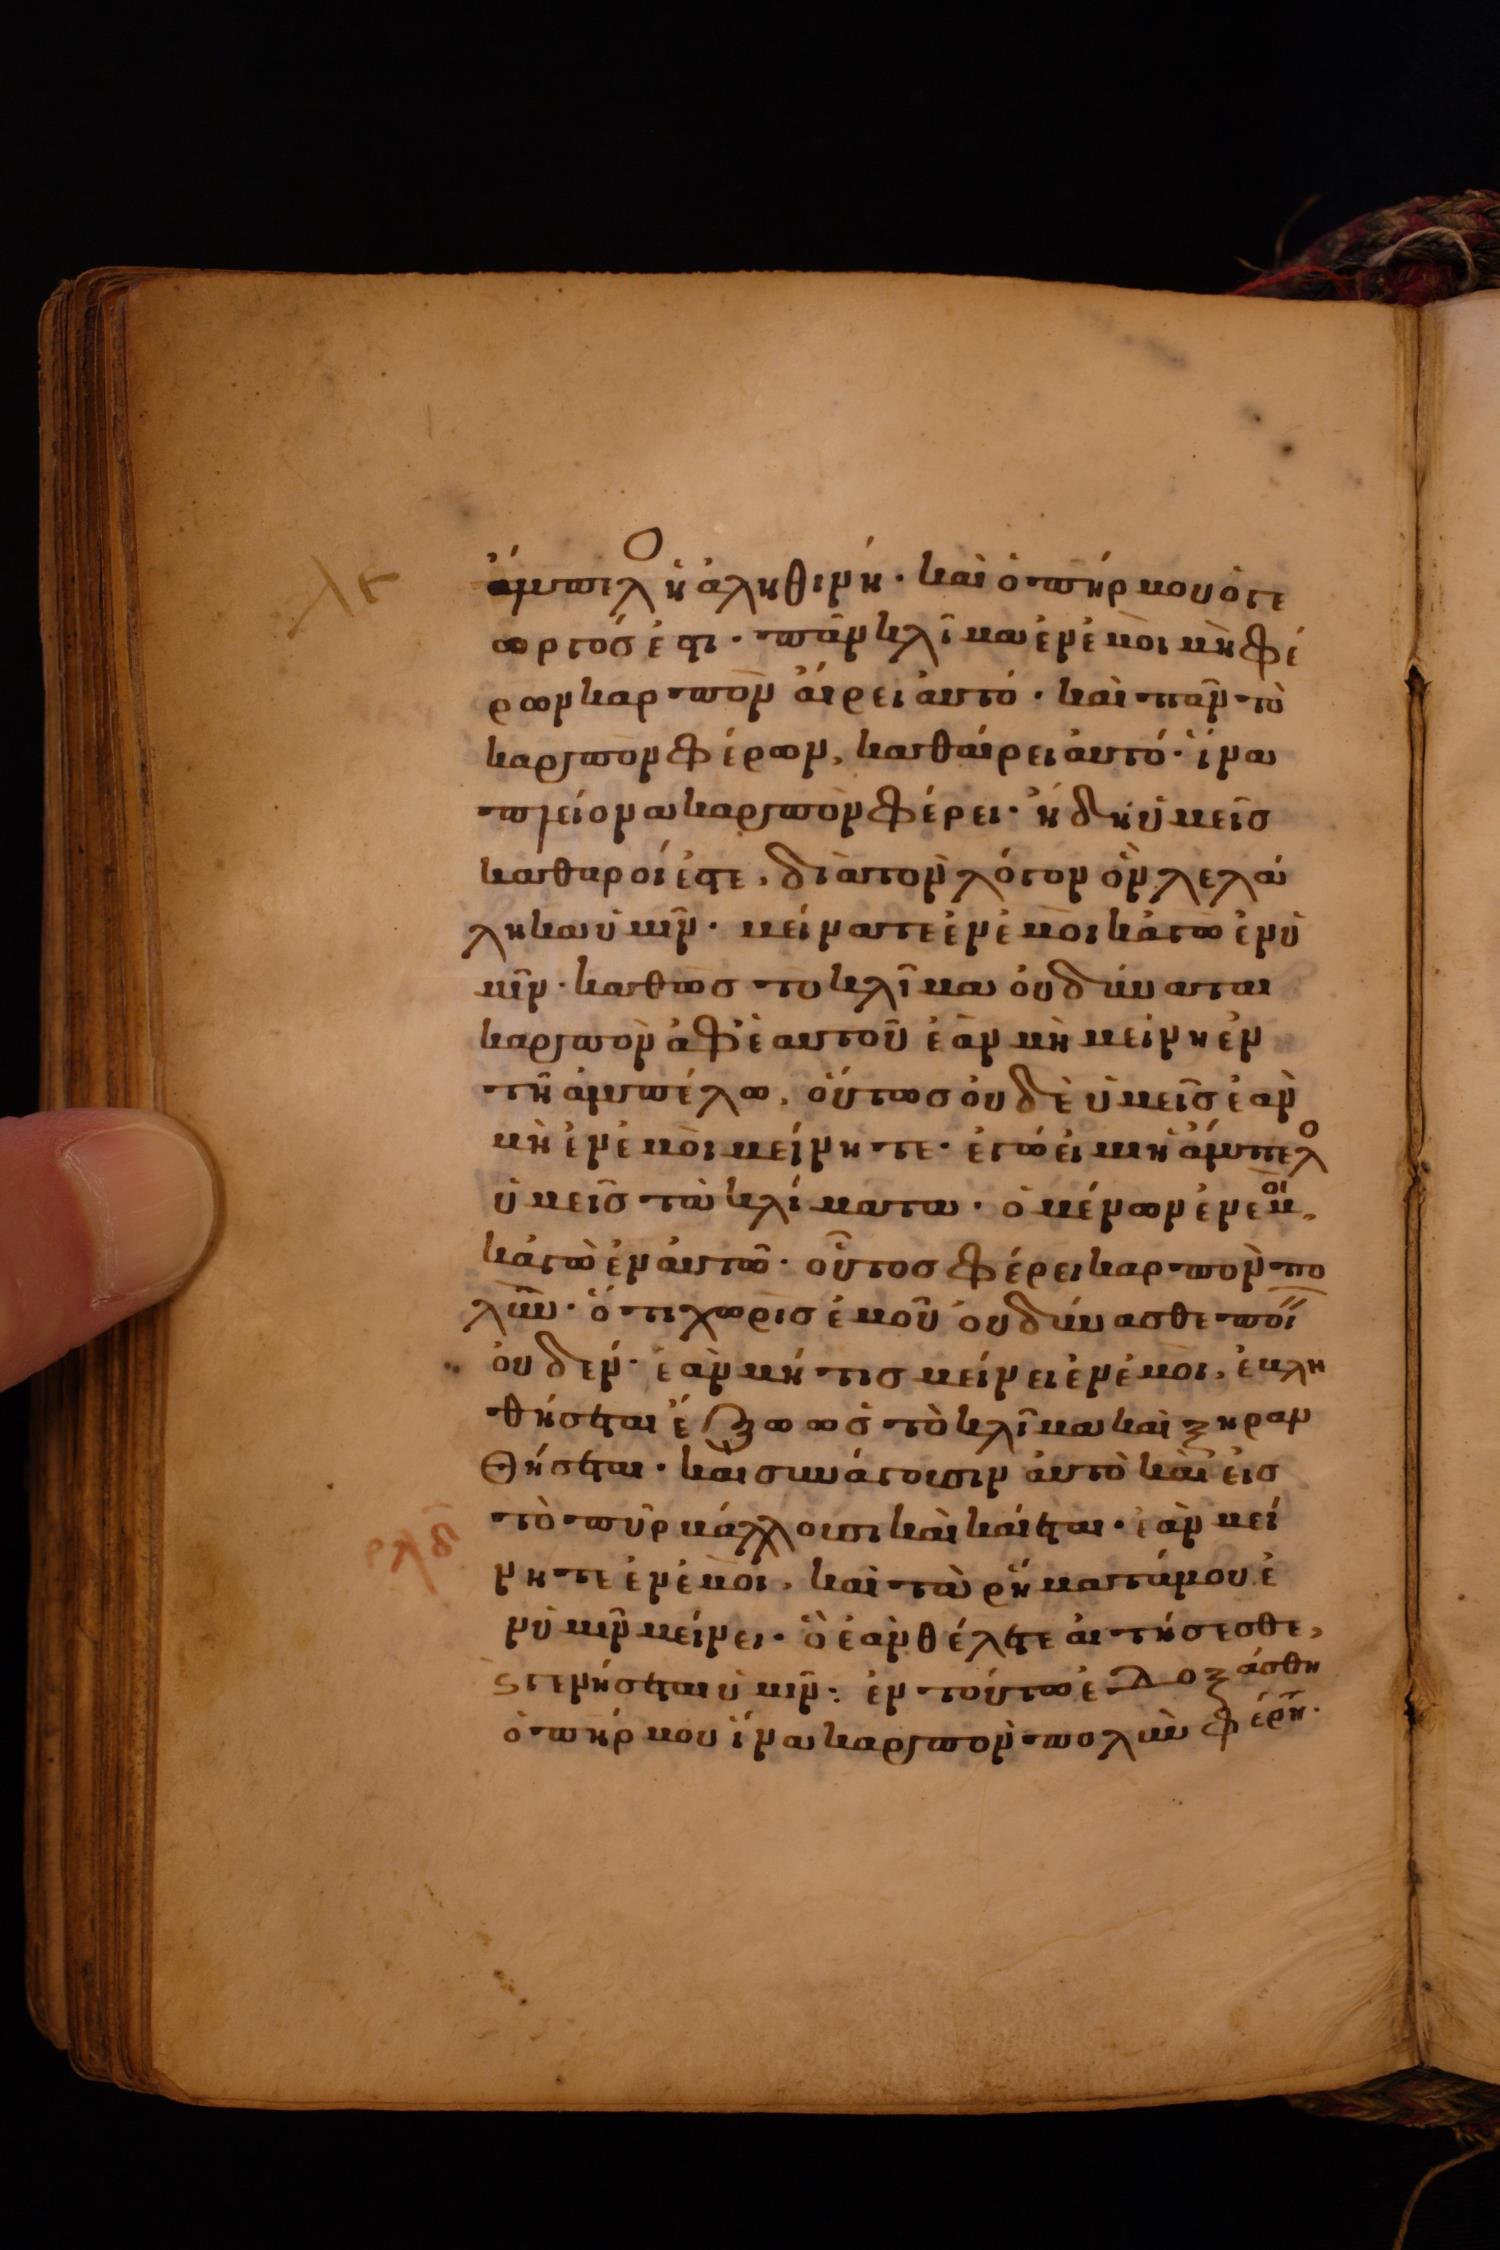 ἄμπελο ἡ ἀληθινή· καὶ ὁ πηρ μου ὁ γε
ωργός ἐστι· πᾶν κλῖμα ἐν ἐμοὶ μὴ φέ
ρων καρπὸν ἄιρει ἀυτό· καὶ πᾶν τὸ
καρπὸν φέρων, καθαίρει ἀυτό· ἵνα
πλείονα καρπὸν φέρει· ἤδη ὑμεῖσ
καθαροί ἐστε, διὰ τὸν λόγον ὃν λελά
ληκα ὑμῖν· μείνατε ἐν ἐμοὶ κἀγὼ ἐν ὑ
μῖν· καθὼσ το κλῖμα ὀυ δύναται
καρπὸν ἀφ' ἑαυτοῦ ἐὰν μὴ μείνη ἐν
τῆ ἀμπέλω, οὕτωσ ὀυδὲ ὑμεῖσ ἐὰν
μὴ ἐν ἐμοὶ μείνητε· ἐγώ ἐιμι ἡ ἄμπελο
ὑμεῖσ τὰ κλίματα· ὁ μένων ἐν ἐμοὶ,
κἀγὼ ἐν ἀυτῶ· οὗτοσ φέρει καρπὸν πο
λῢν· ὅτι χωρὶσ ἐμοῦ ὀυ δύνασθε ποϊ
ὀυδέν· ἐὰν μή τισ μείνει ἐν ἐμοὶ, ἐκλη
θήσεται ἔξω ὡσ τὸ κλῖμα καὶ ξηραν
θήσεται· καὶ συνάγουσιν ἀυτὸ καὶ ἐισ
τὸ πῦρ βάλλουσι καὶ κάιεται· ἐὰν μεί
νητε ἐν ἐμοὶ, καὶ τὰ ρήματά μου ἐ
ν ὑμῖν μείνει· ὃ ἐὰν θέλετε ἀιτήσεσθε,
ϛ γενήσεται ὑμῖν: ἐν τούτω ἐδοξάσθη
ὁ πηρ μου ἵνα καρπὸν πολὺν φέρητε·
ρλδ